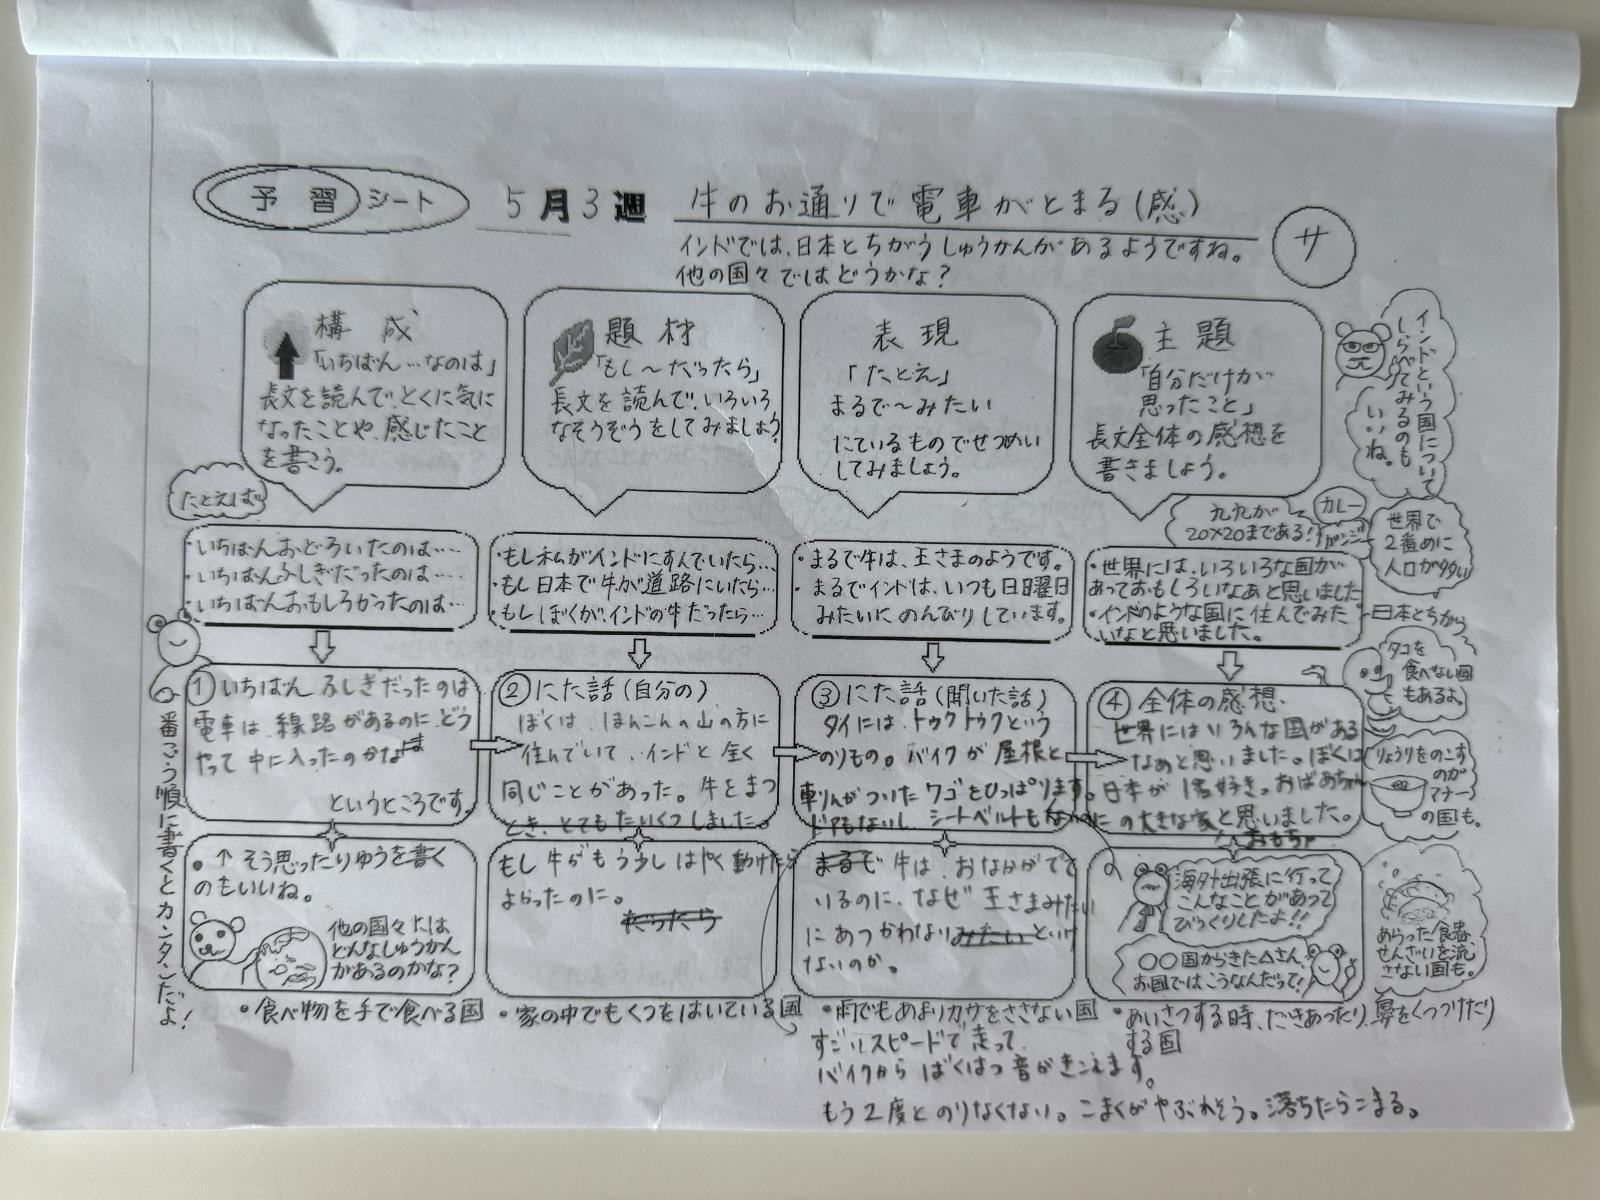 予習シート
5月3週
牛のお通りで電車がとまる(感)
サ
インドでは、日本とちがうしゅうかんがあるようですね。
他の国々ではどうかな?
構成
「いちばん…なのは」
長文を読んで、とくに気に
なったことや、感じたこと
を書こう。
題材
「もし～だったら」
長文を読んで、いろいろ
なそうぞうをしてみましょう。
表現
「たとえ」
まるで～みたい
にているものでせつめい
してみましょう。
主題
「自分だけが
思ったこと」
長文全体の感想を
書きましょう。
インドという国について
しらべてみるのも
いいね。
たとえば
・いちばんおどろいたのは……
・いちばんふしぎだったのは……
・いちばんおもしろかったのは…
・もし私がインドにすんでいたら…
・もし日本で牛が道路にいたら…
・もしぼくが、インドの牛だったら…
・まるで牛は、王さまのようです。
・まるでインドは、いつも日曜日
みたいにのんびりしています。
・世界には、いろいろな国が
あっておもしろいなあと思いました
・インドのような国に住んでみた
いなと思いました。
九九が
20×20まである!
カレー
ガンジー
世界で
2番めに
人口が多い
日本とちがう
タコを
食べない国
もあるよ。
りょうりをのこす
のが
マナー
の国も。
あらった食器、
せんざいを流
さない国も。
番ごう順に書くとカンタンだよ!
①いちばんふしぎだったのは
電車は線路があるのに、どう
やって中に入ったのかな
というところです
②にた話(自分の)
ぼくは、ほんこんの山の方に
住んでいて、インドと全く
同じことがあった。牛をまつ
とき、とてもたいくつしました。
③にた話(聞いた話)
タイには、トゥクトゥクという
のりもの。バイクが屋根と
車りんがついたワゴをひっぱります。
ドアもないし シートベルトもないのに
④全体の感想
世界にはいろんな国がある
なあと思いました。ぼくは
日本が1番好き。おばあちゃん
の大きな家と思いました。
おもちゃ
・↑そう思ったりゆうを書く
のもいいね。
他の国々では
どんなしゅうかん
があるのかな?
もし牛がもう少しはやく動けたら
よかったのに。
だったら
まるで牛は、おなかがでて
いるのに、なぜ王さまみたい
にあつかわなりみたいといけ
ないのか。
海外出張に行って
こんなことがあって
びっくりしたよ!!
○○国からきた△さん
お国ではこうなんだって!
・食べ物を手で食べる国
・家の中でもくつをはいている国
・雨でもあまりカサをささない国
・あいさつする時、だきあったり、鼻をくっつけたり
する国
すごいスピードで走って、
バイクからばくはつ音がきこえます。
もう2度とのりなくない。こまくがやぶれそう。落ちたらこまる。